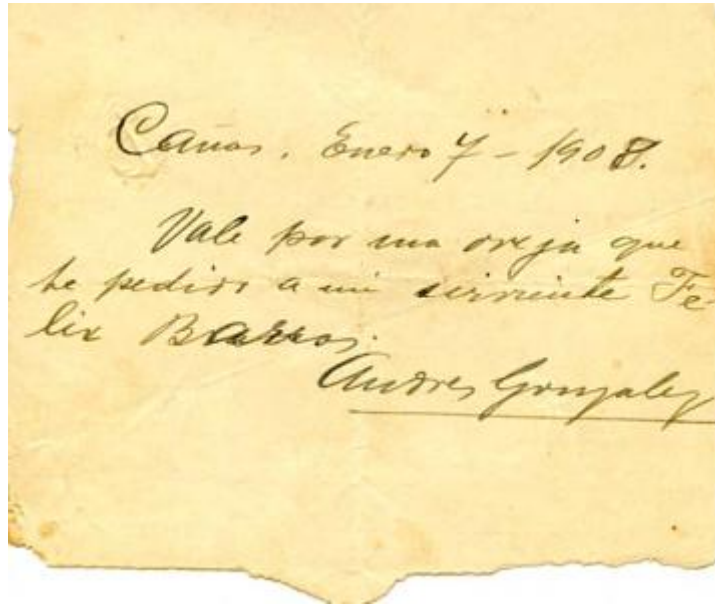 Cañas. Enero 7 - 1908.
Vale por una oveja que
he pedido a mi sirviente Fe-
lix Barros.
Andres Gonzalez